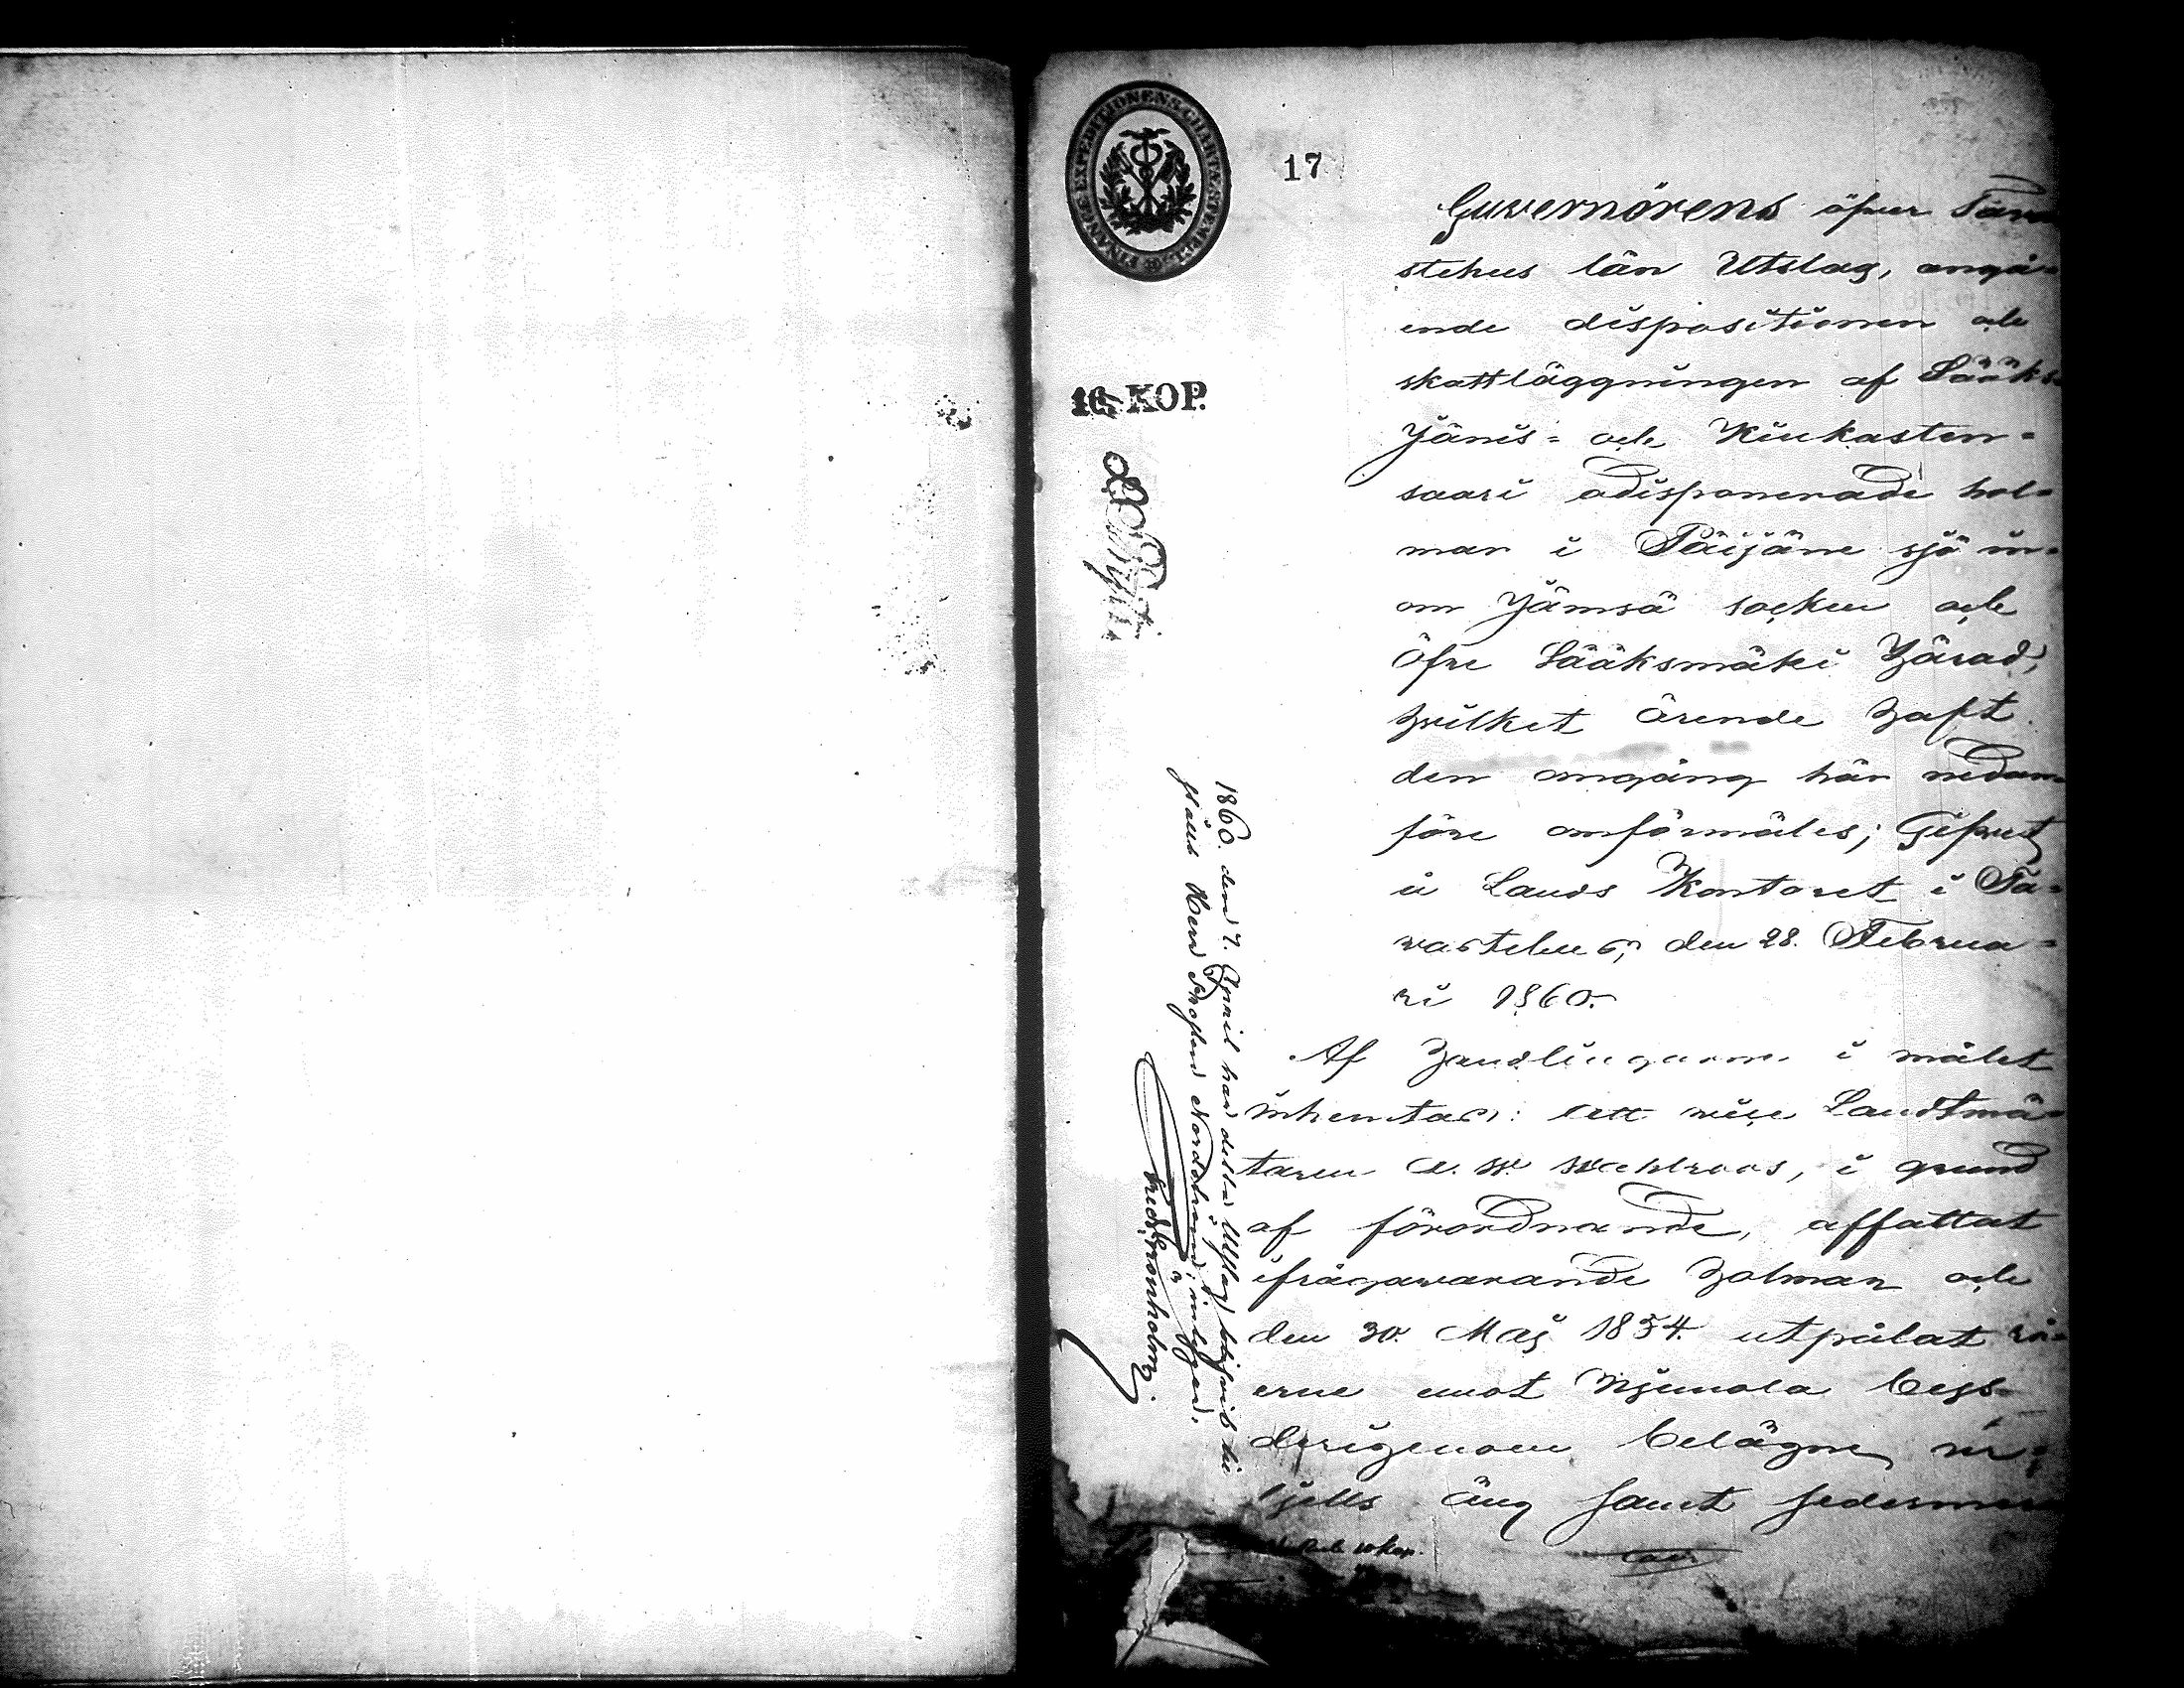 FINANCE EXPEDITIONENS CHARTÆ STEMPEL
17
16. KOP.
Guvernörens öfver Tawa
stehus län Utslag, angå=
ende dispositionen och
skattläggningen af Sääks
Jänis= och Kiukasten=
saari odisponerade hol=
mar i Päijäne sjö in=
om Jämsä socken och
Öfre Sääksmäki Härad,
hvilket ärende haft
den omgång här nedan=
före omförmäles; Gifvet
å Lands Kontoret i Ta=
wastehus, den 28. Februa=
ri 1860.
Af handlingarne i målet
inhemtas: att vice Landtmä=
taren A. W. Wahlroos, i grund
af förordnande, affattat
ifrågavarande holmar och
den 30. Maj 1854 utpålat rå=
erne emot Njunola bys
derigenom belägne ur=
fjells äng samt sedermera
1860. den 7. April har detta Utslag blifvit till=
stäldt Herr Profken Nordstrand; intygar.
Fred. Grönholm.
Rub. 10 kop.